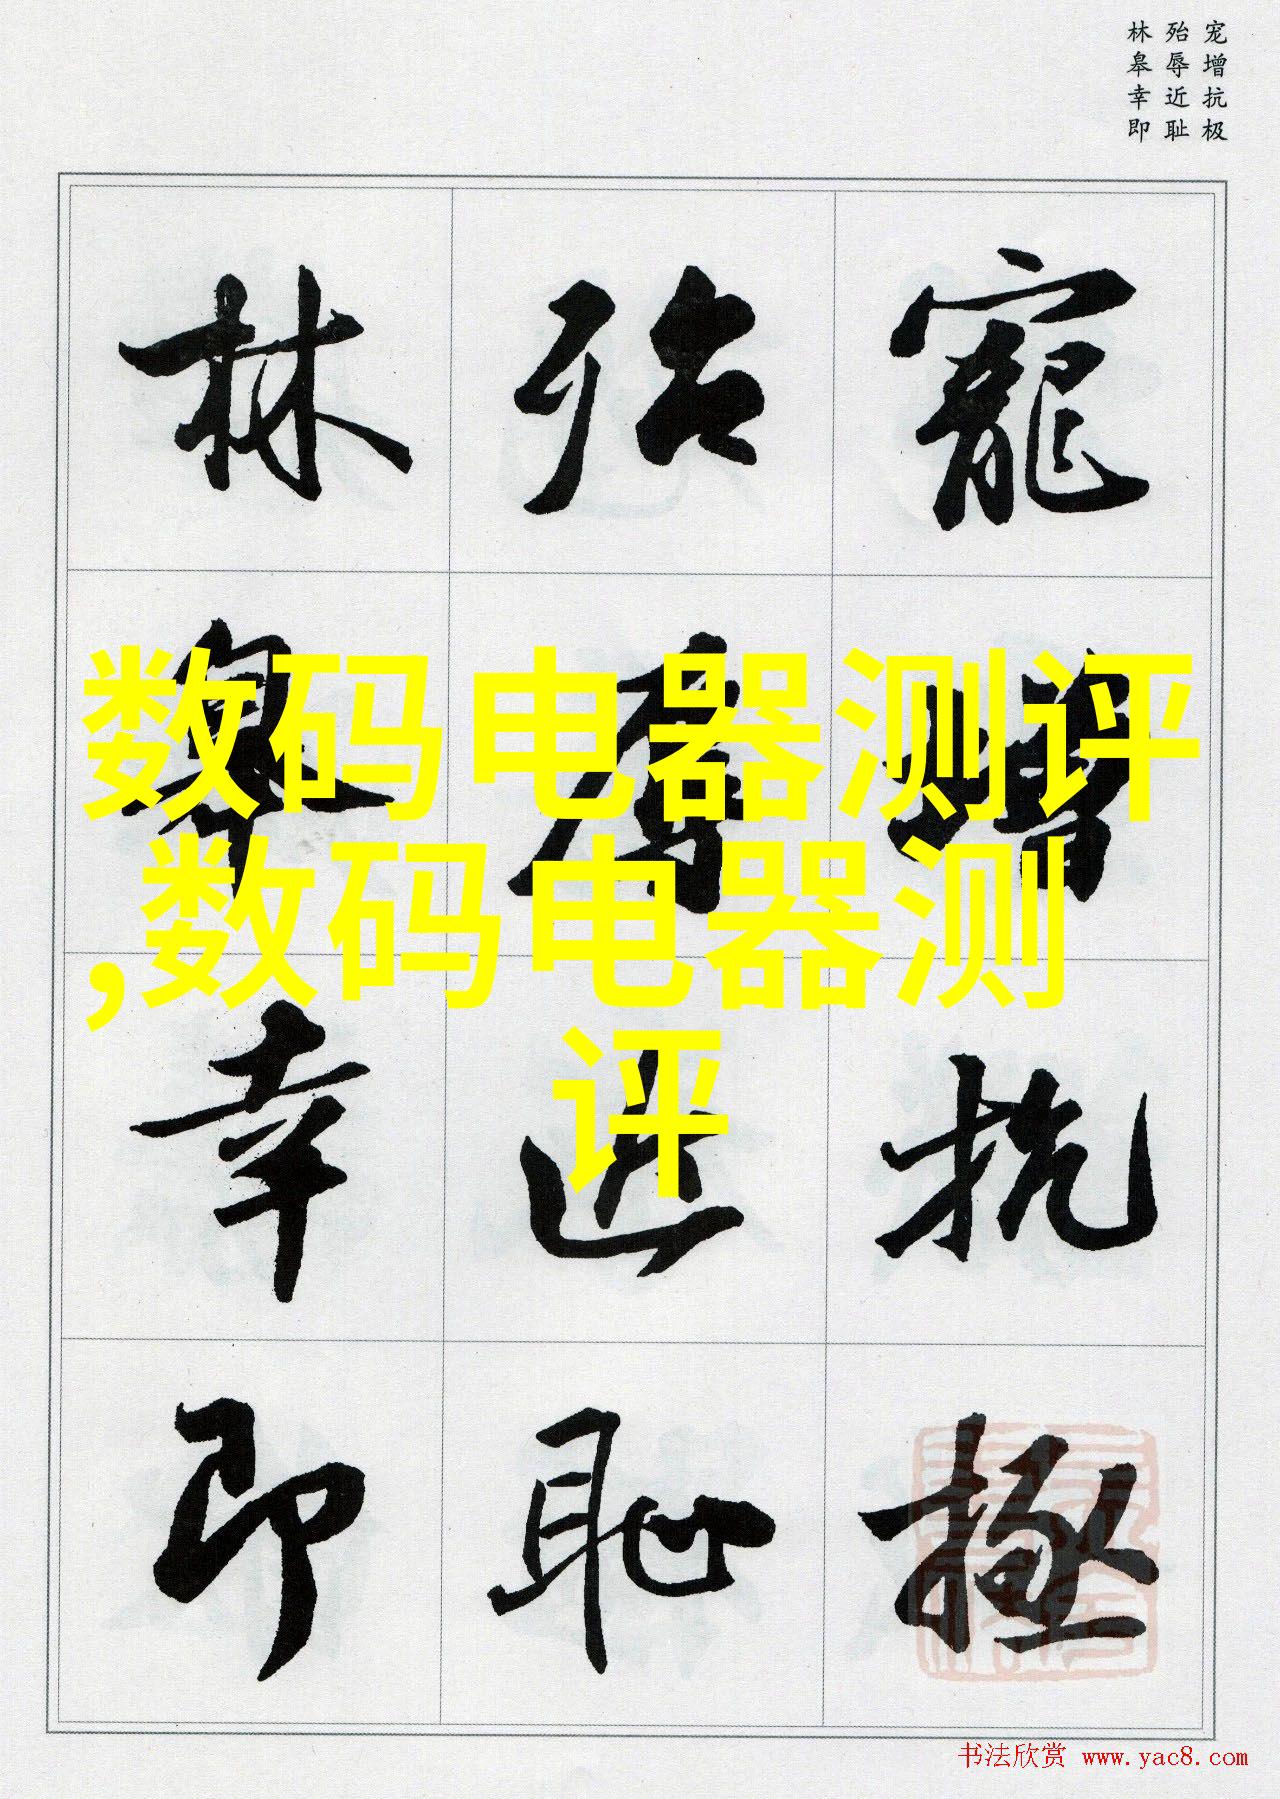 宠增抗极
殆辱近耻
林皋幸即
寵增抗極
殆辱近恥
林皋幸即
数码电器测评
,数码电器测
评
书法欣赏 www.yac8.com